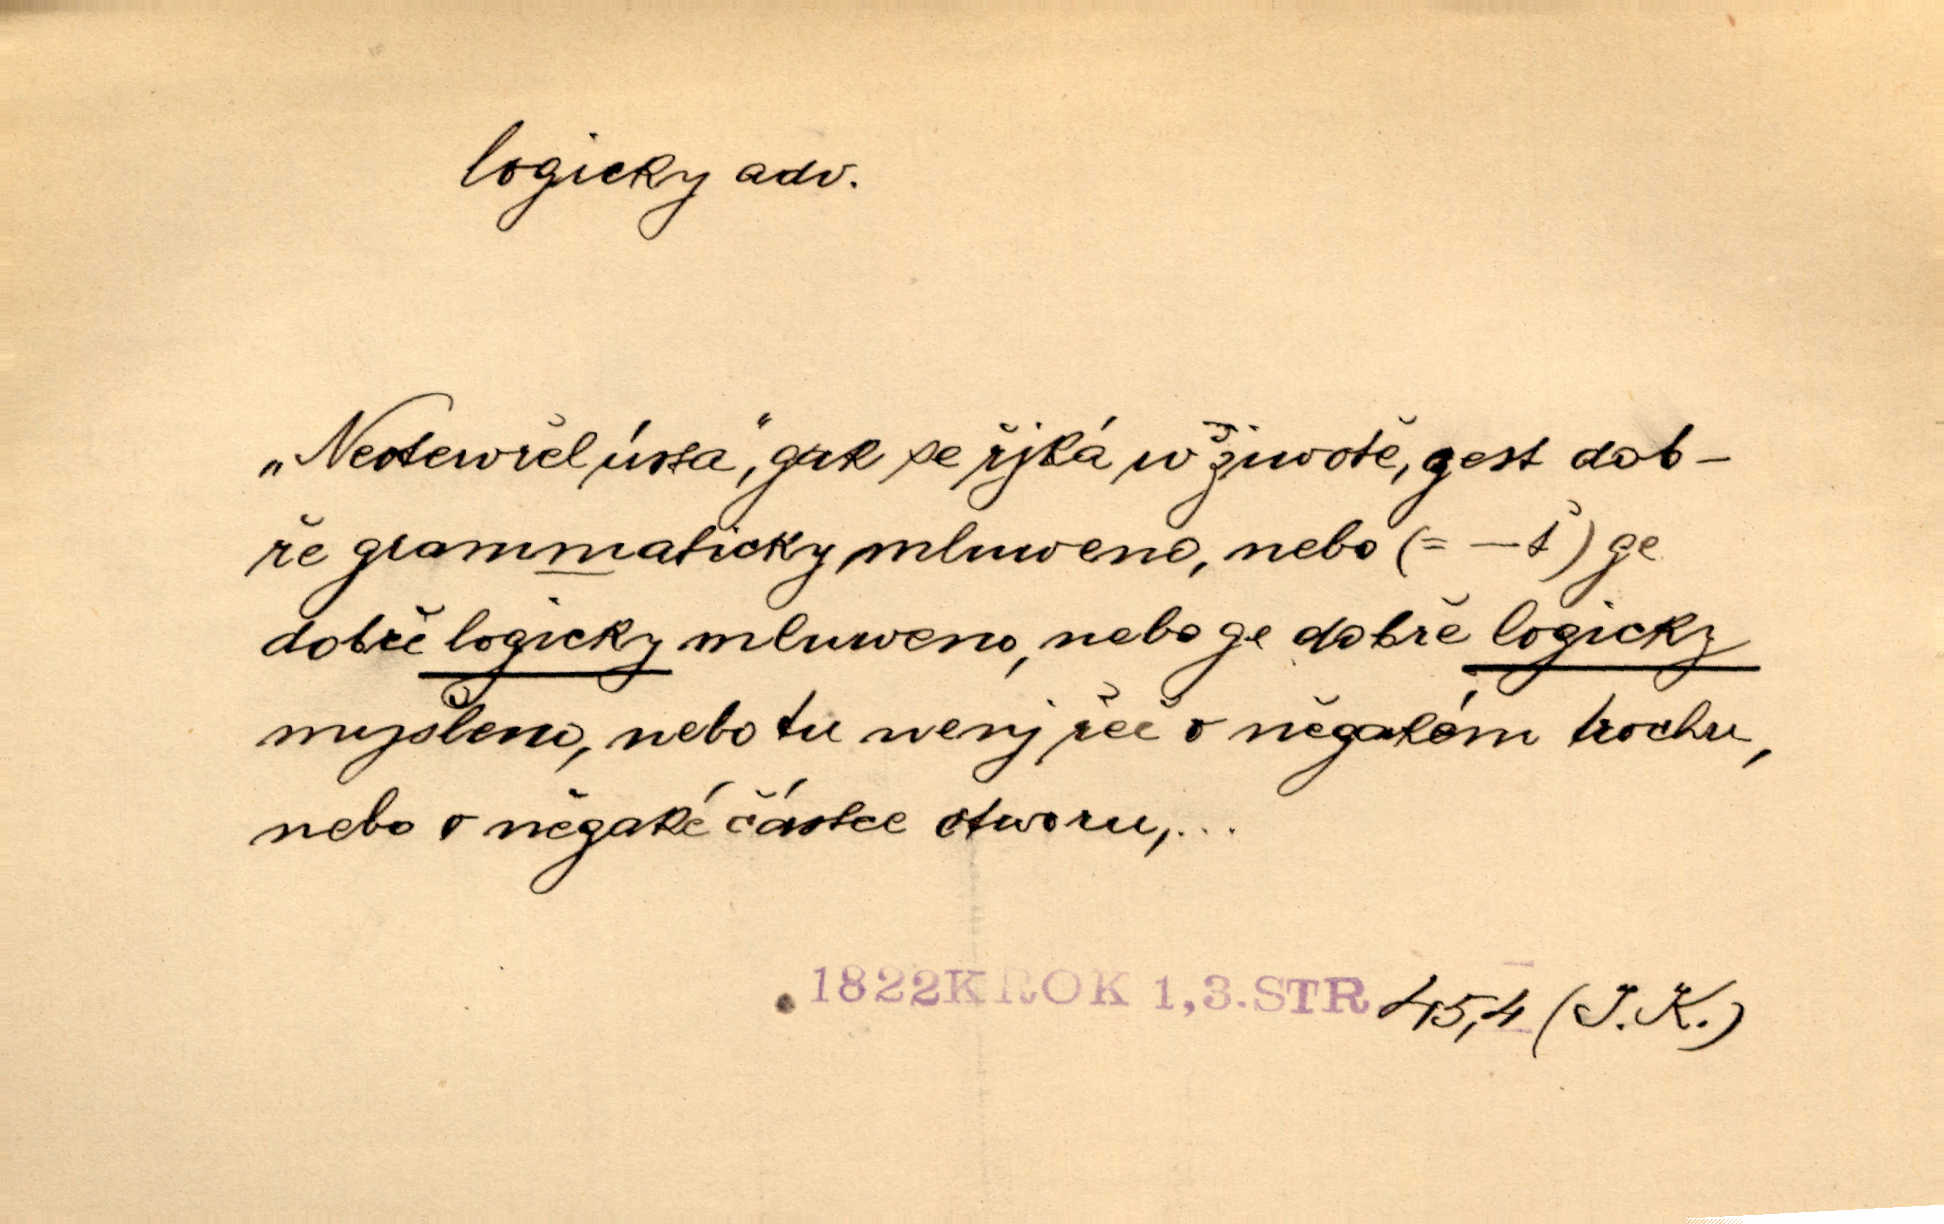 logicky adv.
„Neotewřel ústa", gak se řjká w žiwotě, gest dob-
ře grammaticky mluweno, nebo (= -ť) ge
dobře logicky mluweno, nebo ge dobře logicky
myšleno, nebo tu nenj řeč o něgakém trochu,
nebo o něgaké částce otworu,...
1822 KROK 1,3. STR. 45,4 (J.K.)